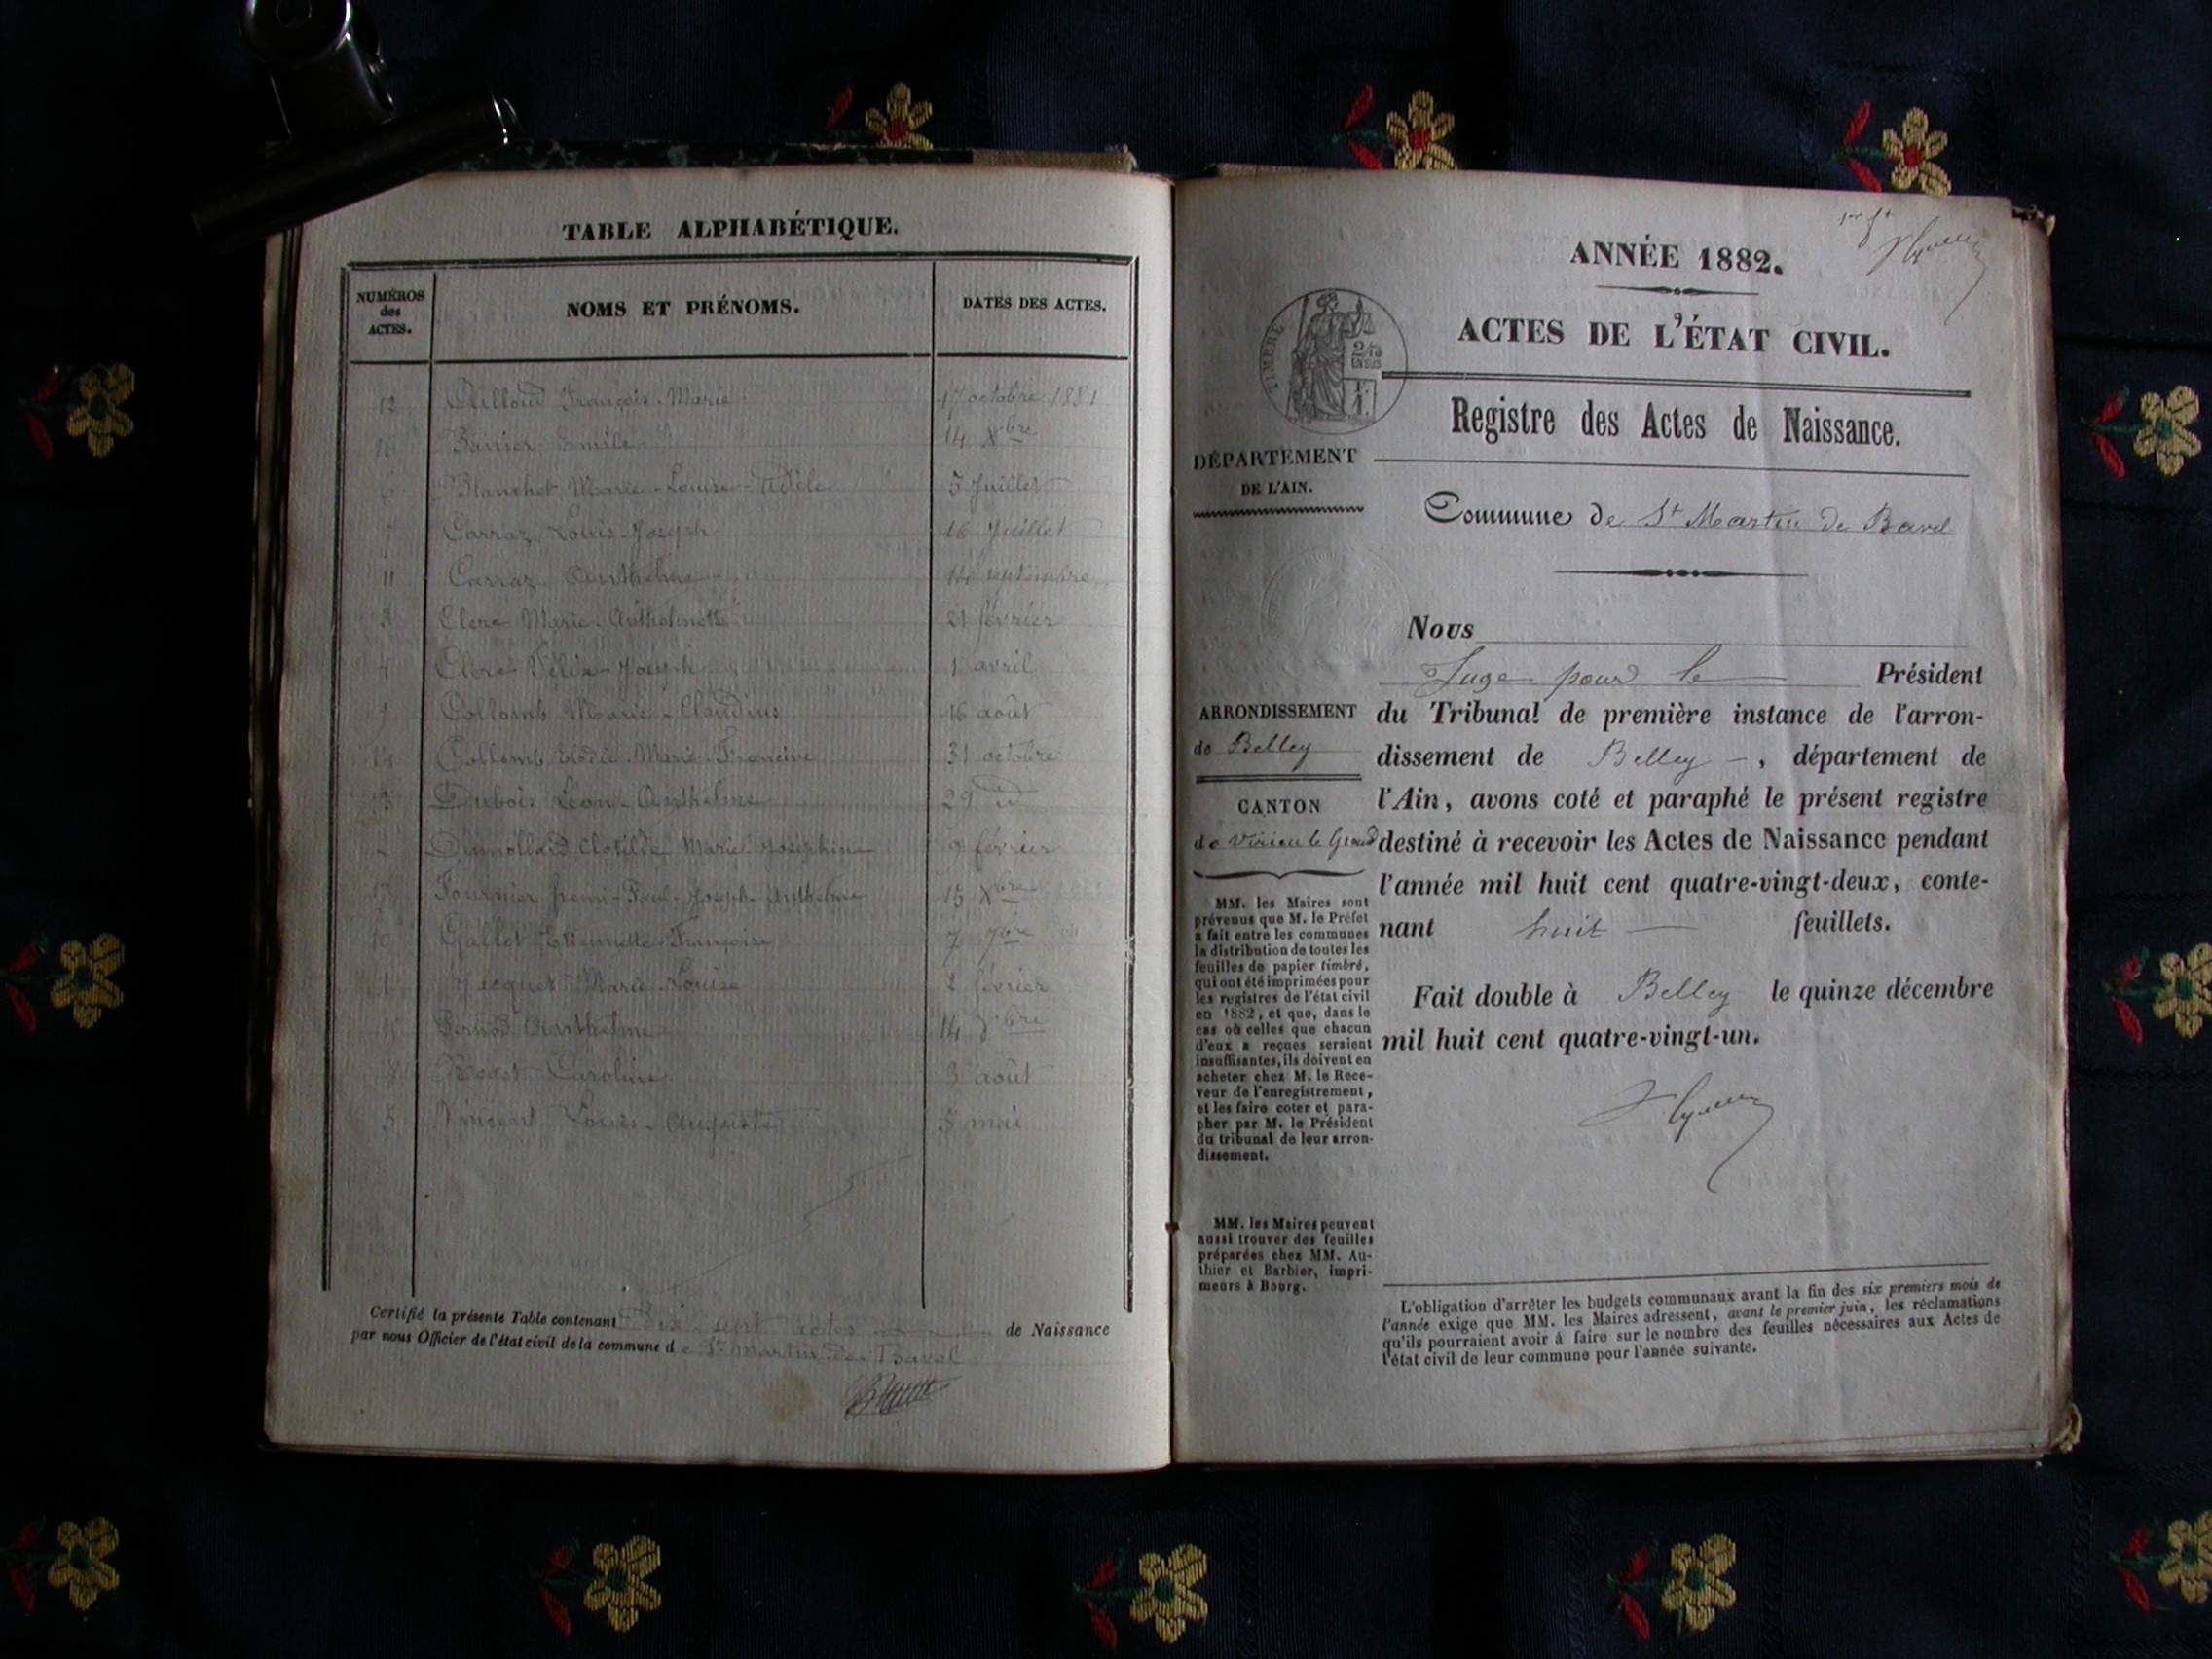 TABLE ALPHABÉTIQUE.
NUMÉROS
des
ACTES.
NOMS ET PRÉNOMS.
DATES DES ACTES.
12 Ailloud François-Marie 17 octobre 1881
16 Banier Emile 14 Xbre
6 Blanchet Marie-Louise-Adèle 5 Juillet
7 Carraz Louis-Joseph 16 Juillet
11 Carraz Anthelme 14 septembre
3 Clerc Marie-Anthelmette 21 février
4 Clerc Félix-Joseph 1 avril
9 Collomb Marie-Claudius 16 août
14 Collomb Elodie-Marie-Francine 31 octobre
13 Dubois Léon-Anthelme 29 id
2 Dumollard Clotilde Marie Joséphine 9 février
17 Fournier Henri-Paul-Joseph-Anthelme 15 Xbre
10 Gallet Etiennette-Françoise 7 7bre
1 Jacquet Marie-Louise 2 février
Pernod Anthelme 14
8 Caroline 3 août
5 Vincent Louis-Auguste 5 mai
Certifié la présente Table contenant Dix-sept actes de Naissance
par nous Officier de l'état civil de la commune de St Martin de Bavel
ANNÉE 1882.
ACTES DE L'ÉTAT CIVIL.
TIMBRE
Registre des Actes de Naissance.
DÉPARTEMENT
DE L'AIN.
Commune de St Martin de Bavel
Nous
Juge pour le Président
ARRONDISSEMENT
de Belley
du Tribunal de première instance de l'arron-
dissement de Belley, département de
CANTON
de Virieu le Grand
l'Ain, avons coté et paraphé le présent registre
destiné à recevoir les Actes de Naissance pendant
l'année mil huit cent quatre-vingt-deux, conte-
nant huit feuillets.
Fait double à Belley le quinze décembre
mil huit cent quatre-vingt-un.
MM. les Maires sont
prévenus que M. le Préfet
a fait entre les communes
la distribution de toutes les
feuilles de papier timbré,
qui ont été imprimées pour
les registres de l'état civil
en 1882, et que, dans le
cas où celles que chacun
d'eux a reçues seraient
insuffisantes, ils doivent en
acheter chez M. le Rece-
veur de l'enregistrement,
et les faire coter et para-
pher par M. le Président
du tribunal de leur arron-
dissement.
MM. les Maires peuvent
aussi trouver des feuilles
préparées chez MM. Au-
thier et Barbier, impri-
meurs à Bourg.
L'obligation d'arrêter les budgets communaux avant la fin des six premiers mois de
l'année exige que MM. les Maires adressent, avant le premier juin, les réclamations
qu'ils pourraient avoir à faire sur le nombre des feuilles nécessaires aux Actes de
l'état civil de leur commune pour l'année suivante.